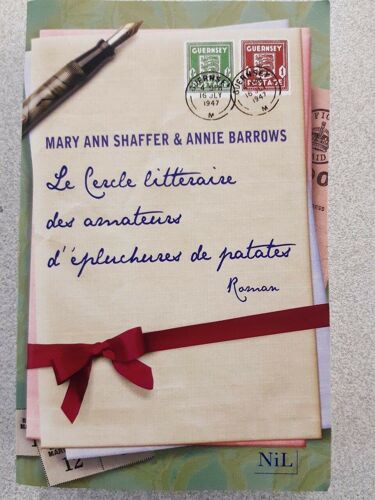 GUERNSEY
GUERNSEY
POSTAGE
GUERNSEY
16 JLY
1947
M
GUERNSEY
16 JLY
1947
M
MARY ANN SHAFFER & ANNIE BARROWS
Le Cercle littéraire
des amateurs
d'épluchures de patates
Roman
12
NiL